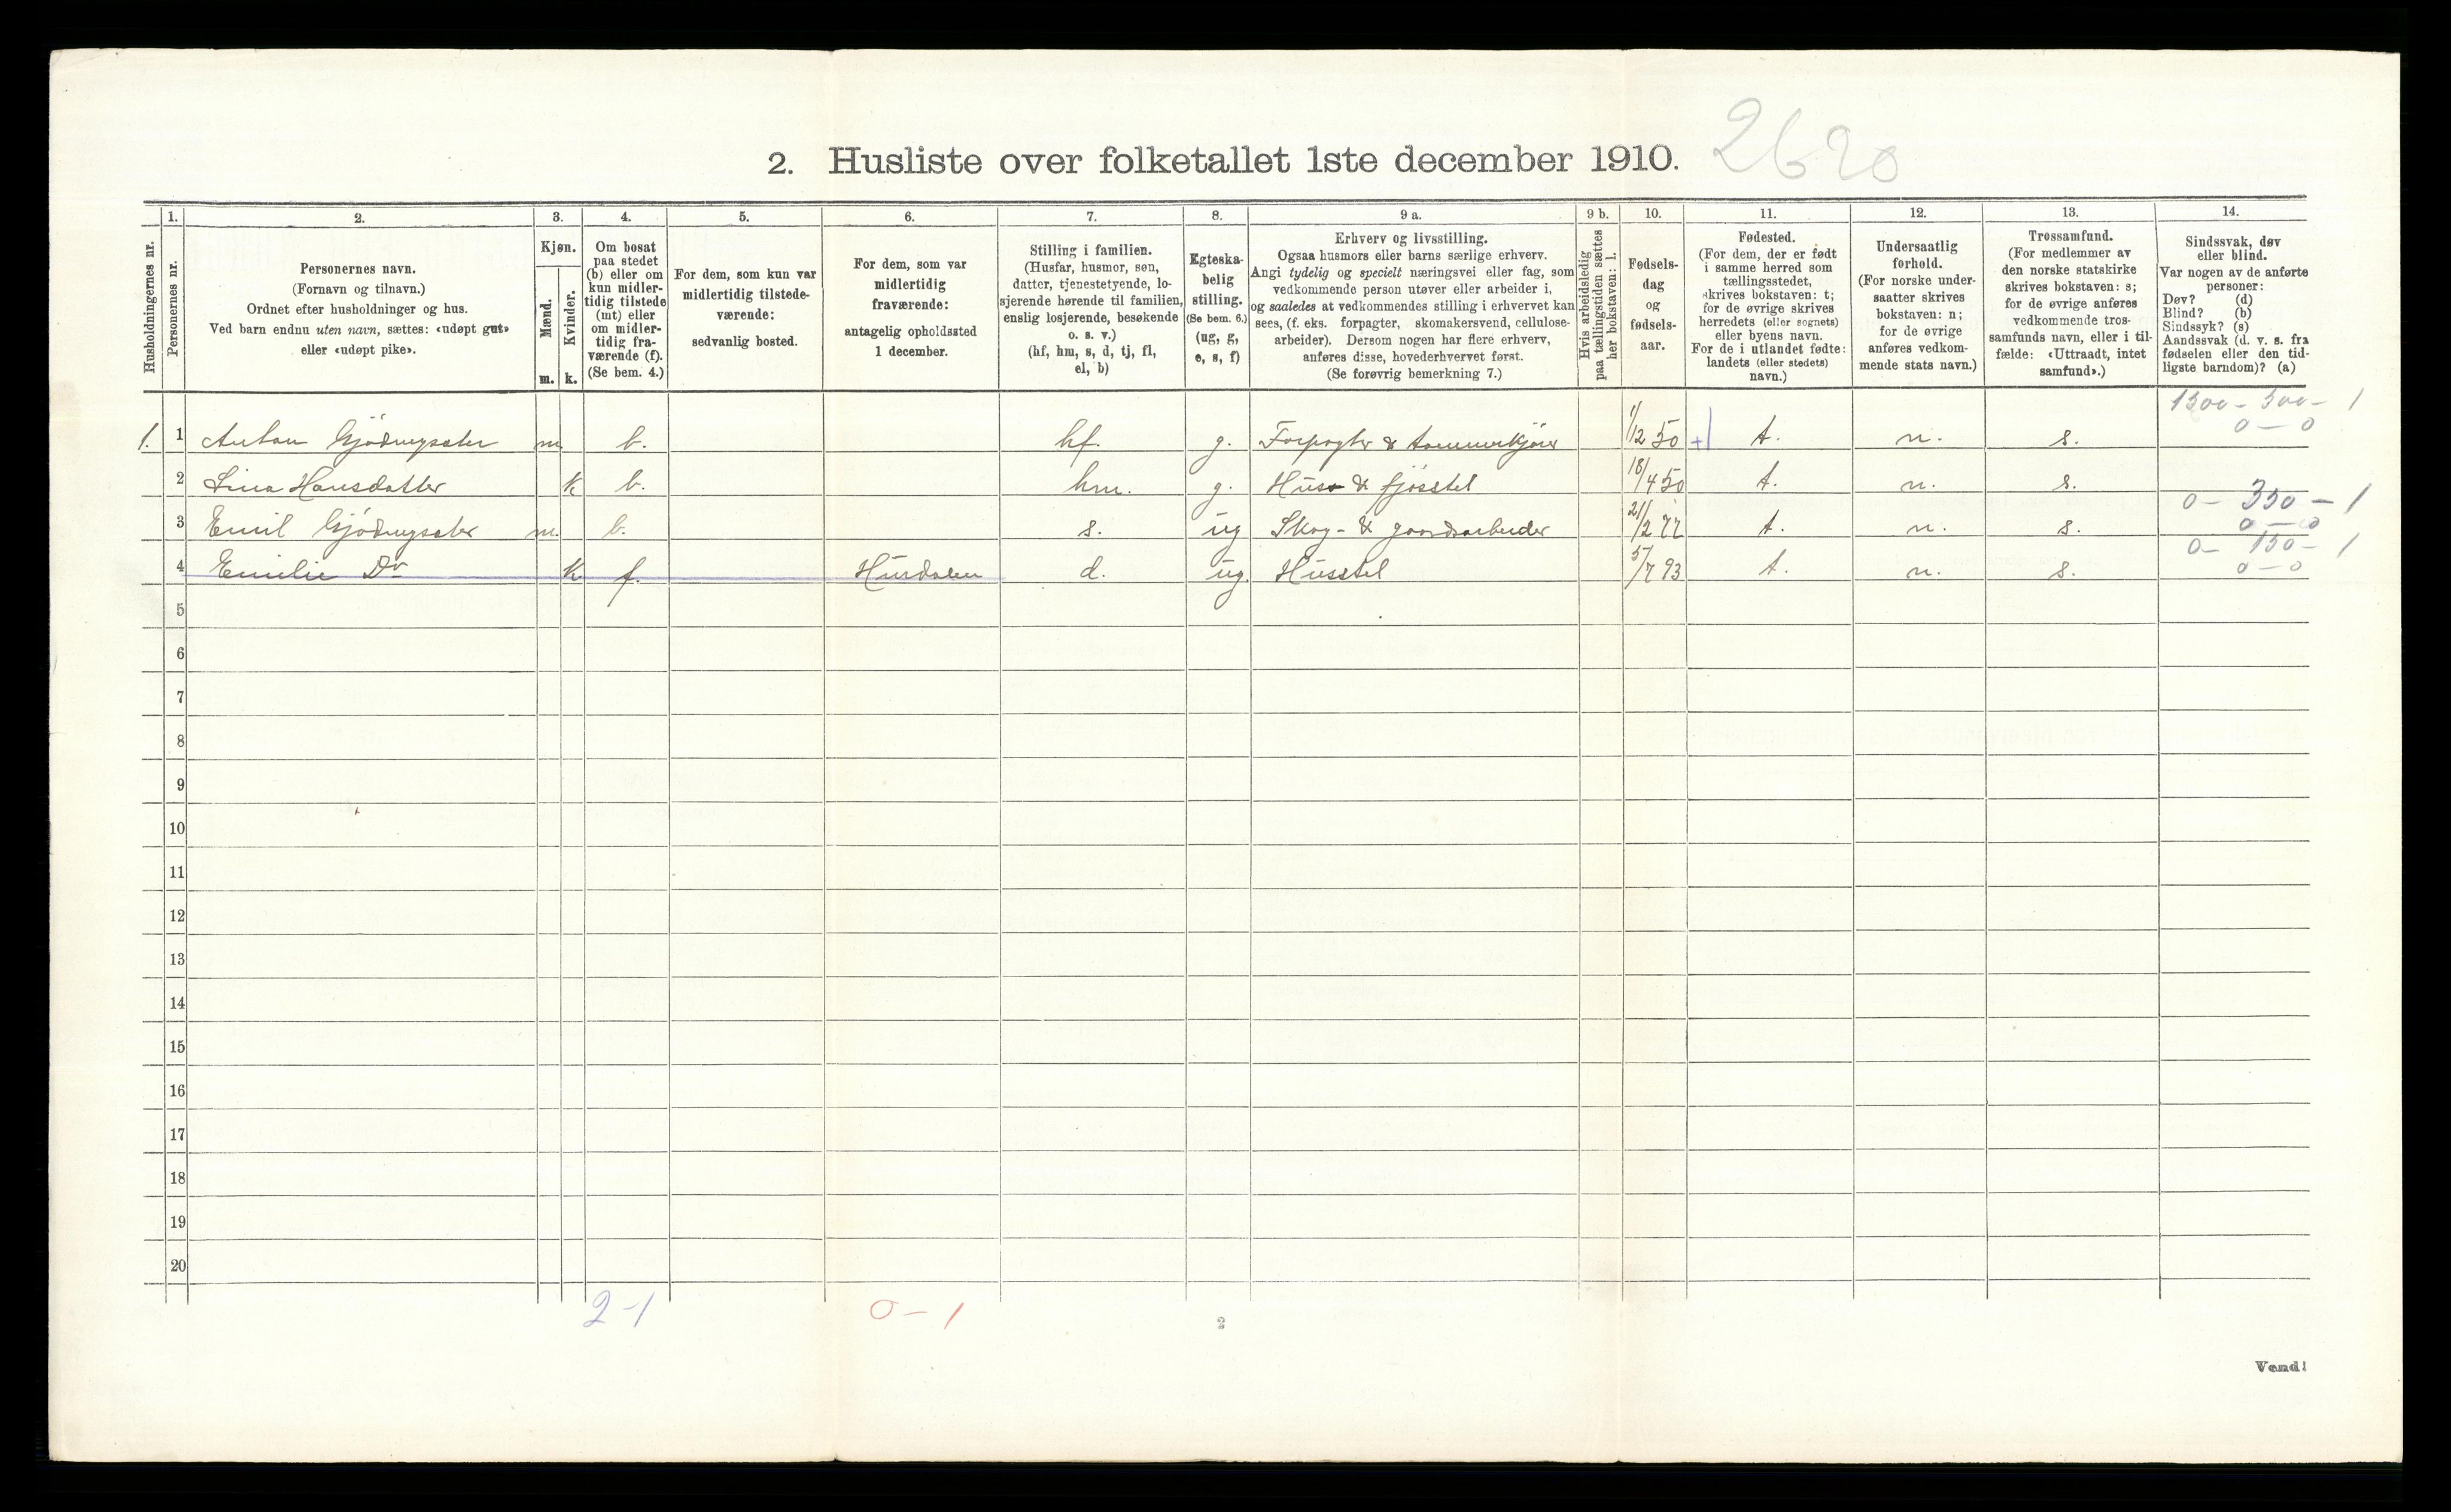 2. Husliste over folketallet 1ste december 1910. 2620
Husholdningernes nr.
1.
Personernes nr.
2.
Personernes navn.
(Fornavn og tilnavn.)
Ordnet efter husholdninger og hus.
Ved barn endnu uten navn, sættes: «udøpt gut»
eller «udøpt pike».
3.
Kjøn.
Mænd.
Kvinder.
m. k.
4.
Om bosat
paa stedet
(b) eller om
kun midler-
tidig tilstede
(mt) eller
om midler-
tidig fra-
værende (f).
(Se bem. 4.)
5.
For dem, som kun var
midlertidig tilstede-
værende:
sedvanlig bosted.
6.
For dem, som var
midlertidig
fraværende:
antagelig opholdssted
1 december.
7.
Stilling i familien.
(Husfar, husmor, søn,
datter, tjenestetyende, lo-
sjerende hørende til familien,
enslig losjerende, besøkende
o. s. v.)
(hf, hm, s, d, tj, fl,
el, b)
8.
Egteska-
belig
stilling.
(Se bem. 6.)
(ug, g,
e, s, f)
9 a.
Erhverv og livsstilling.
Ogsaa husmors eller barns særlige erhverv.
Angi tydelig og specielt næringsvei eller fag, som
vedkommende person utøver eller arbeider i,
og saaledes at vedkommendes stilling i erhvervet kan
sees, (f. eks. forpagter, skomakersvend, cellulose-
arbeider). Dersom nogen har flere erhverv,
anføres disse, hovederhvervet først.
(Se forøvrig bemerkning 7.)
9 b.
Hvis arbeidsledig
paa tællingstiden sættes
her bokstaven: l.
10.
Fødsels-
dag
og
fødsels-
aar.
11.
Fødested.
(For dem, der er født
i samme herred som
tællingsstedet,
skrives bokstaven: t;
for de øvrige skrives
herredets (eller sognets)
eller byens navn.
For de i utlandet fødte:
landets (eller stedets)
navn.)
12.
Undersaatlig
forhold.
(For norske under-
saatter skrives
bokstaven: n;
for de øvrige
anføres vedkom-
mende stats navn.)
13.
Trossamfund.
(For medlemmer av
den norske statskirke
skrives bokstaven: s;
for de øvrige anføres
vedkommende tros-
samfunds navn, eller i til-
fælde: «Uttraadt, intet
samfund».)
14.
Sindssvak, døv
eller blind.
Var nogen av de anførte
personer:
Døv? (d)
Blind? (b)
Sindssyk? (s)
Aandssvak (d. v. s. fra
fødselen eller den tid-
ligste barndom)? (a)
1300 - 300 - 1
0 - 0
1. 1 Anton m b. hf. g. Forpagter & tømmerkjører 1/2 50 + t. n. s.
2 Lina Hansdatter k b. hm. g. Hus & fjøsstel 18/4 50 t. n. s.
0 - 350 - 1
0 - 0
3 Emil m. b. s. ug Skog- & gaardsarbeider 21/2 77 t. n. s.
0 - 150 - 1
0 - 0
4 Emilie Do k f. Hurdalen d. ug. Husstel 5/7 93 t. n. s.
5
6
7
8
9
10
11
12
13
14
15
16
17
18
19
20
2-1 0-1
2
Vend!